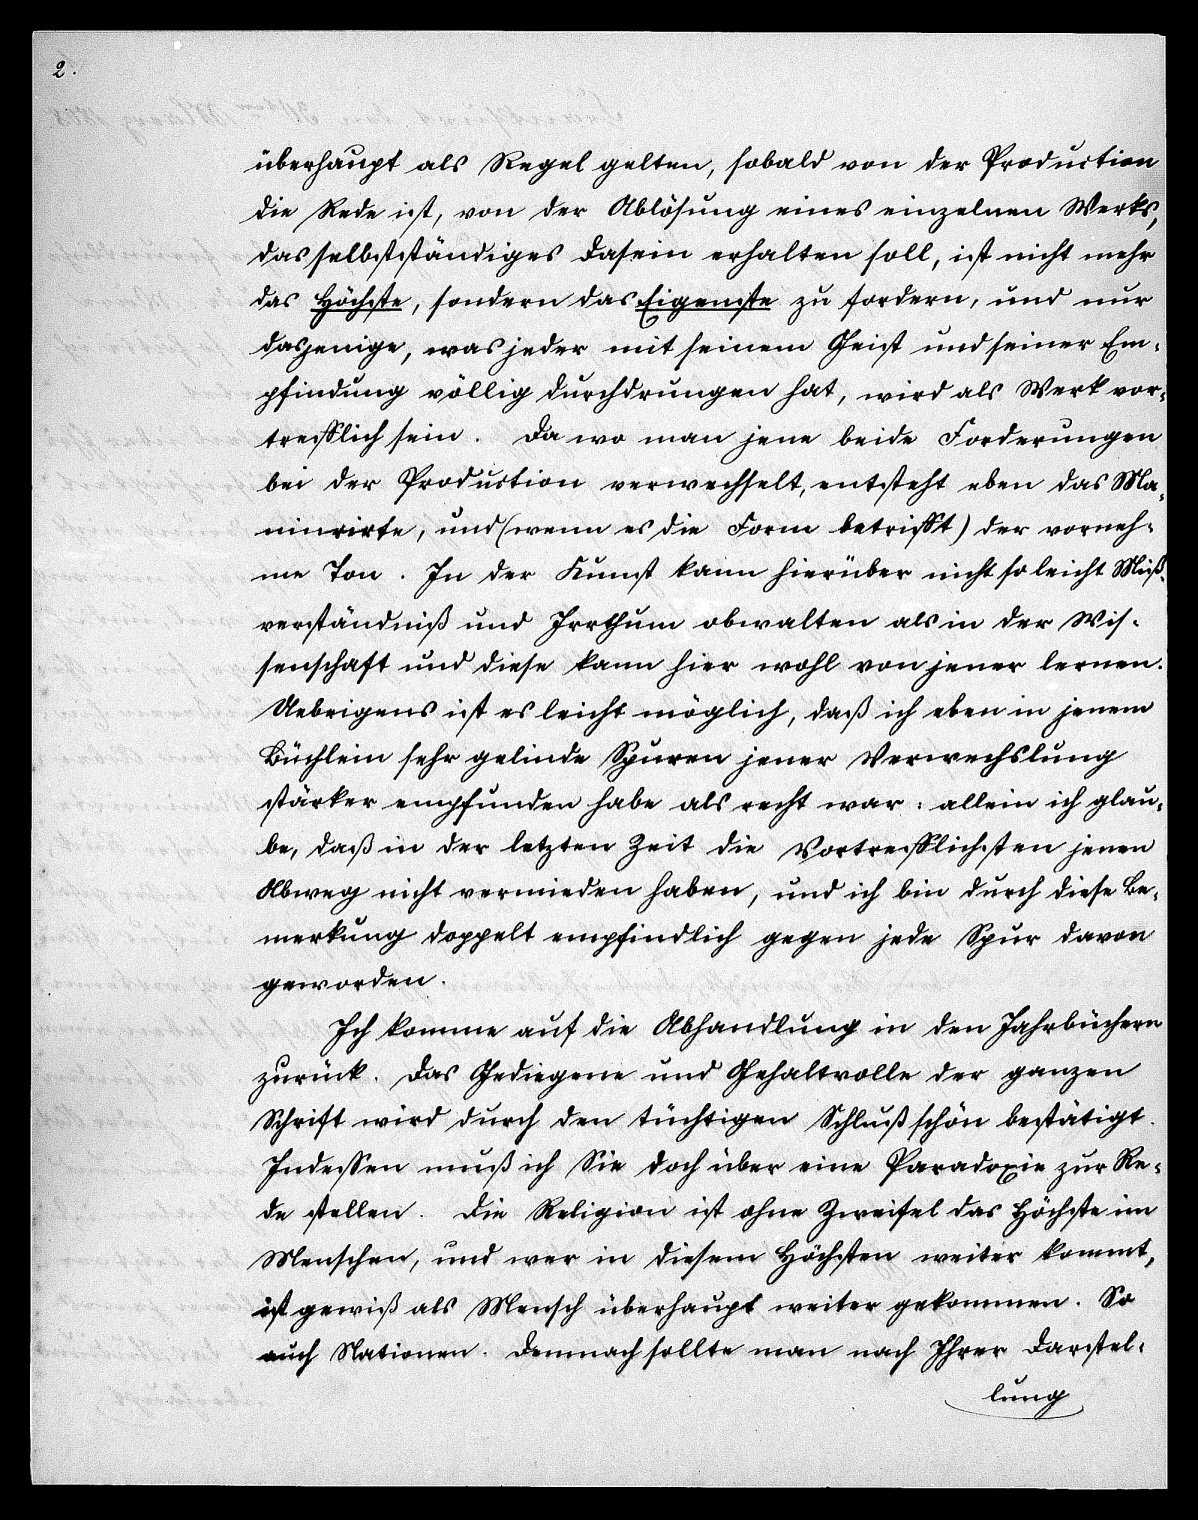 2.
überhaupt als Regel gelten, sobald von der Production
die Rede ist, von der Ablösung eines einzelnen Werks,
das selbstständiges Dasein erhalten soll, ist nicht mehr
das Höchste, sondern das Eigenste zu fordern, und nur
dasjenige, was jeder mit seinem Geist und seiner Em-
pfindung völlig durchdrungen hat, wird als Werk vor-
trefflich sein. Da wo man jene beide Forderungen
bei der Production verwechselt, entsteht eben das Ma-
nierirte, und (wenn es die Form betrifft) der vorneh-
me Ton. In der Kunst kann hierüber nicht so leicht Miß-
verständniß und Irrthum obwalten als in der Wis-
senschaft und diese kann hier wohl von jener lernen.
Uebrigens ist es leicht möglich, daß ich eben in jenem
Büchlein sehr gelinde Spuren jener Verwechslung
stärker empfunden habe als recht war: allein ich glau-
be, daß in der letzten Zeit die Vortrefflichsten jenen
Abweg nicht vermieden haben, und ich bin durch diese Be-
merkung doppelt empfindlich gegen jede Spur davon
geworden.
Ich komme auf die Abhandlung in den Jahrbüchern
zurück. Das Gediegene und Gehaltvolle der ganzen
Schrift wird durch den tüchtigen Schluß schön bestätigt.
Indessen muß ich Sie doch über eine Paradoxie zur Re-
de stellen. Die Religion ist ohne Zweifel das Höchste im
Menschen, und wer in diesem Höchsten weiter kommt,
ist gewiß als Mensch überhaupt weiter gekommen. So
auch Nationen. Demnach sollte man nach Ihrer Darstel-
lung